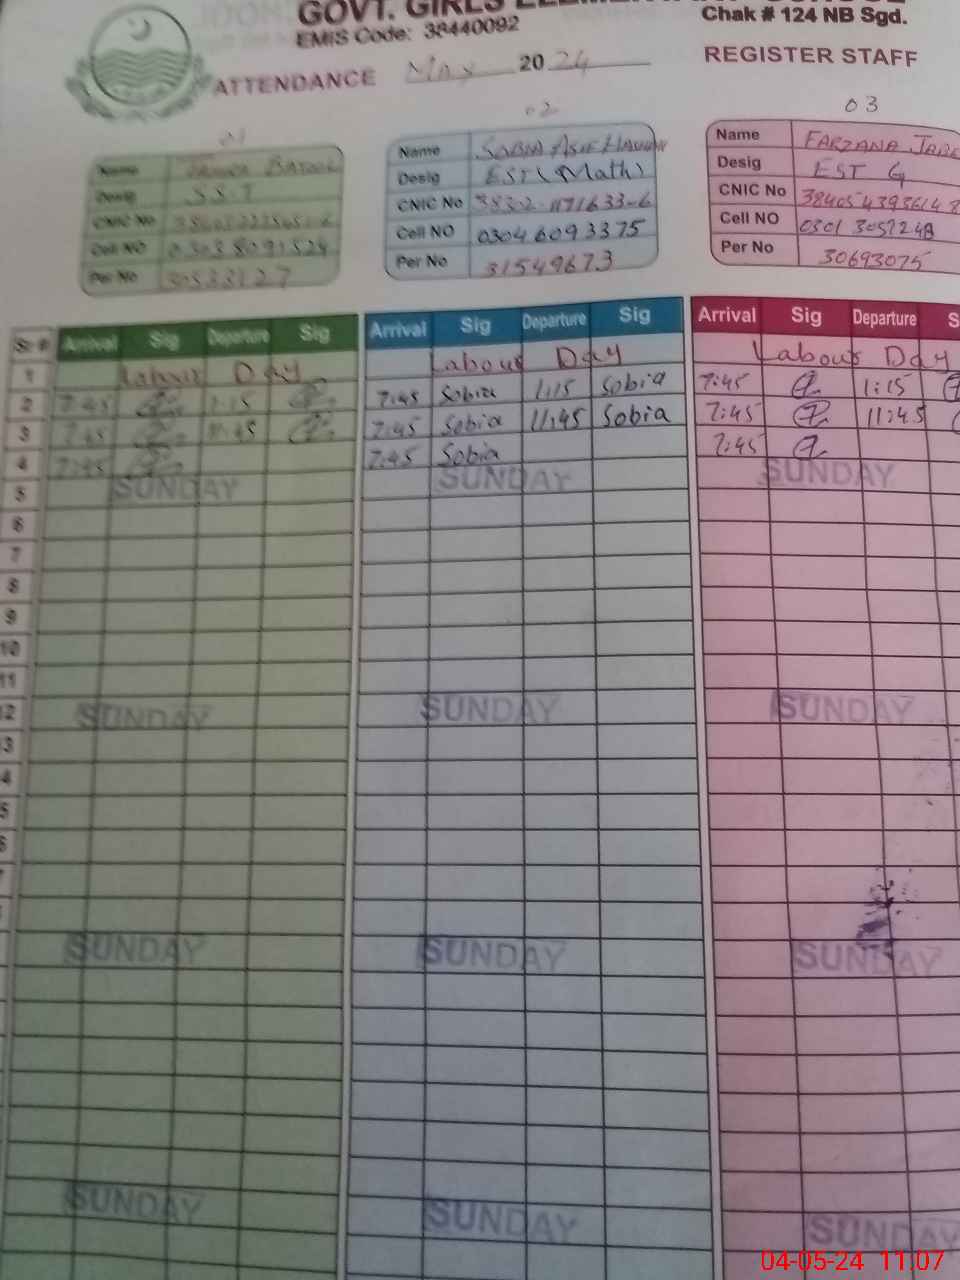 GOVT. GIRLS ELEMENTARY SCHOOL
EMIS Code: 38440092
Chak # 124 NB Sgd.
ATTENDANCE May 2024
REGISTER STAFF
01
Name
Desig S.S.T
CNIC No
Cell NO 0303 8091524
Per No
02
Name Sobia Asif
Desig EST (Math)
CNIC No 38302-1171633-6
Cell NO 0304 6093375
Per No 31549673
03
Name FARZANA
Desig EST G
CNIC No
Cell NO
Per No 30693075
Sr # Arrival Sig Departure Sig Arrival Sig Departure Sig Arrival Sig Departure S
1 Labour Day Labour Day Labour Day
2 7:45 1:15 7:45 Sobia 1:15 Sobia 7:45 1:15
3 7:45 11:45 7:45 Sobia 11:45 Sobia 7:45 11:45
4 7:45 7:45 Sobia 7:45
5 SUNDAY SUNDAY SUNDAY
6
7
8
9
10
11
12 SUNDAY SUNDAY SUNDAY
3
4
5
SUNDAY SUNDAY SUNDAY
SUNDAY SUNDAY SUNDAY
04-05-24 11:07